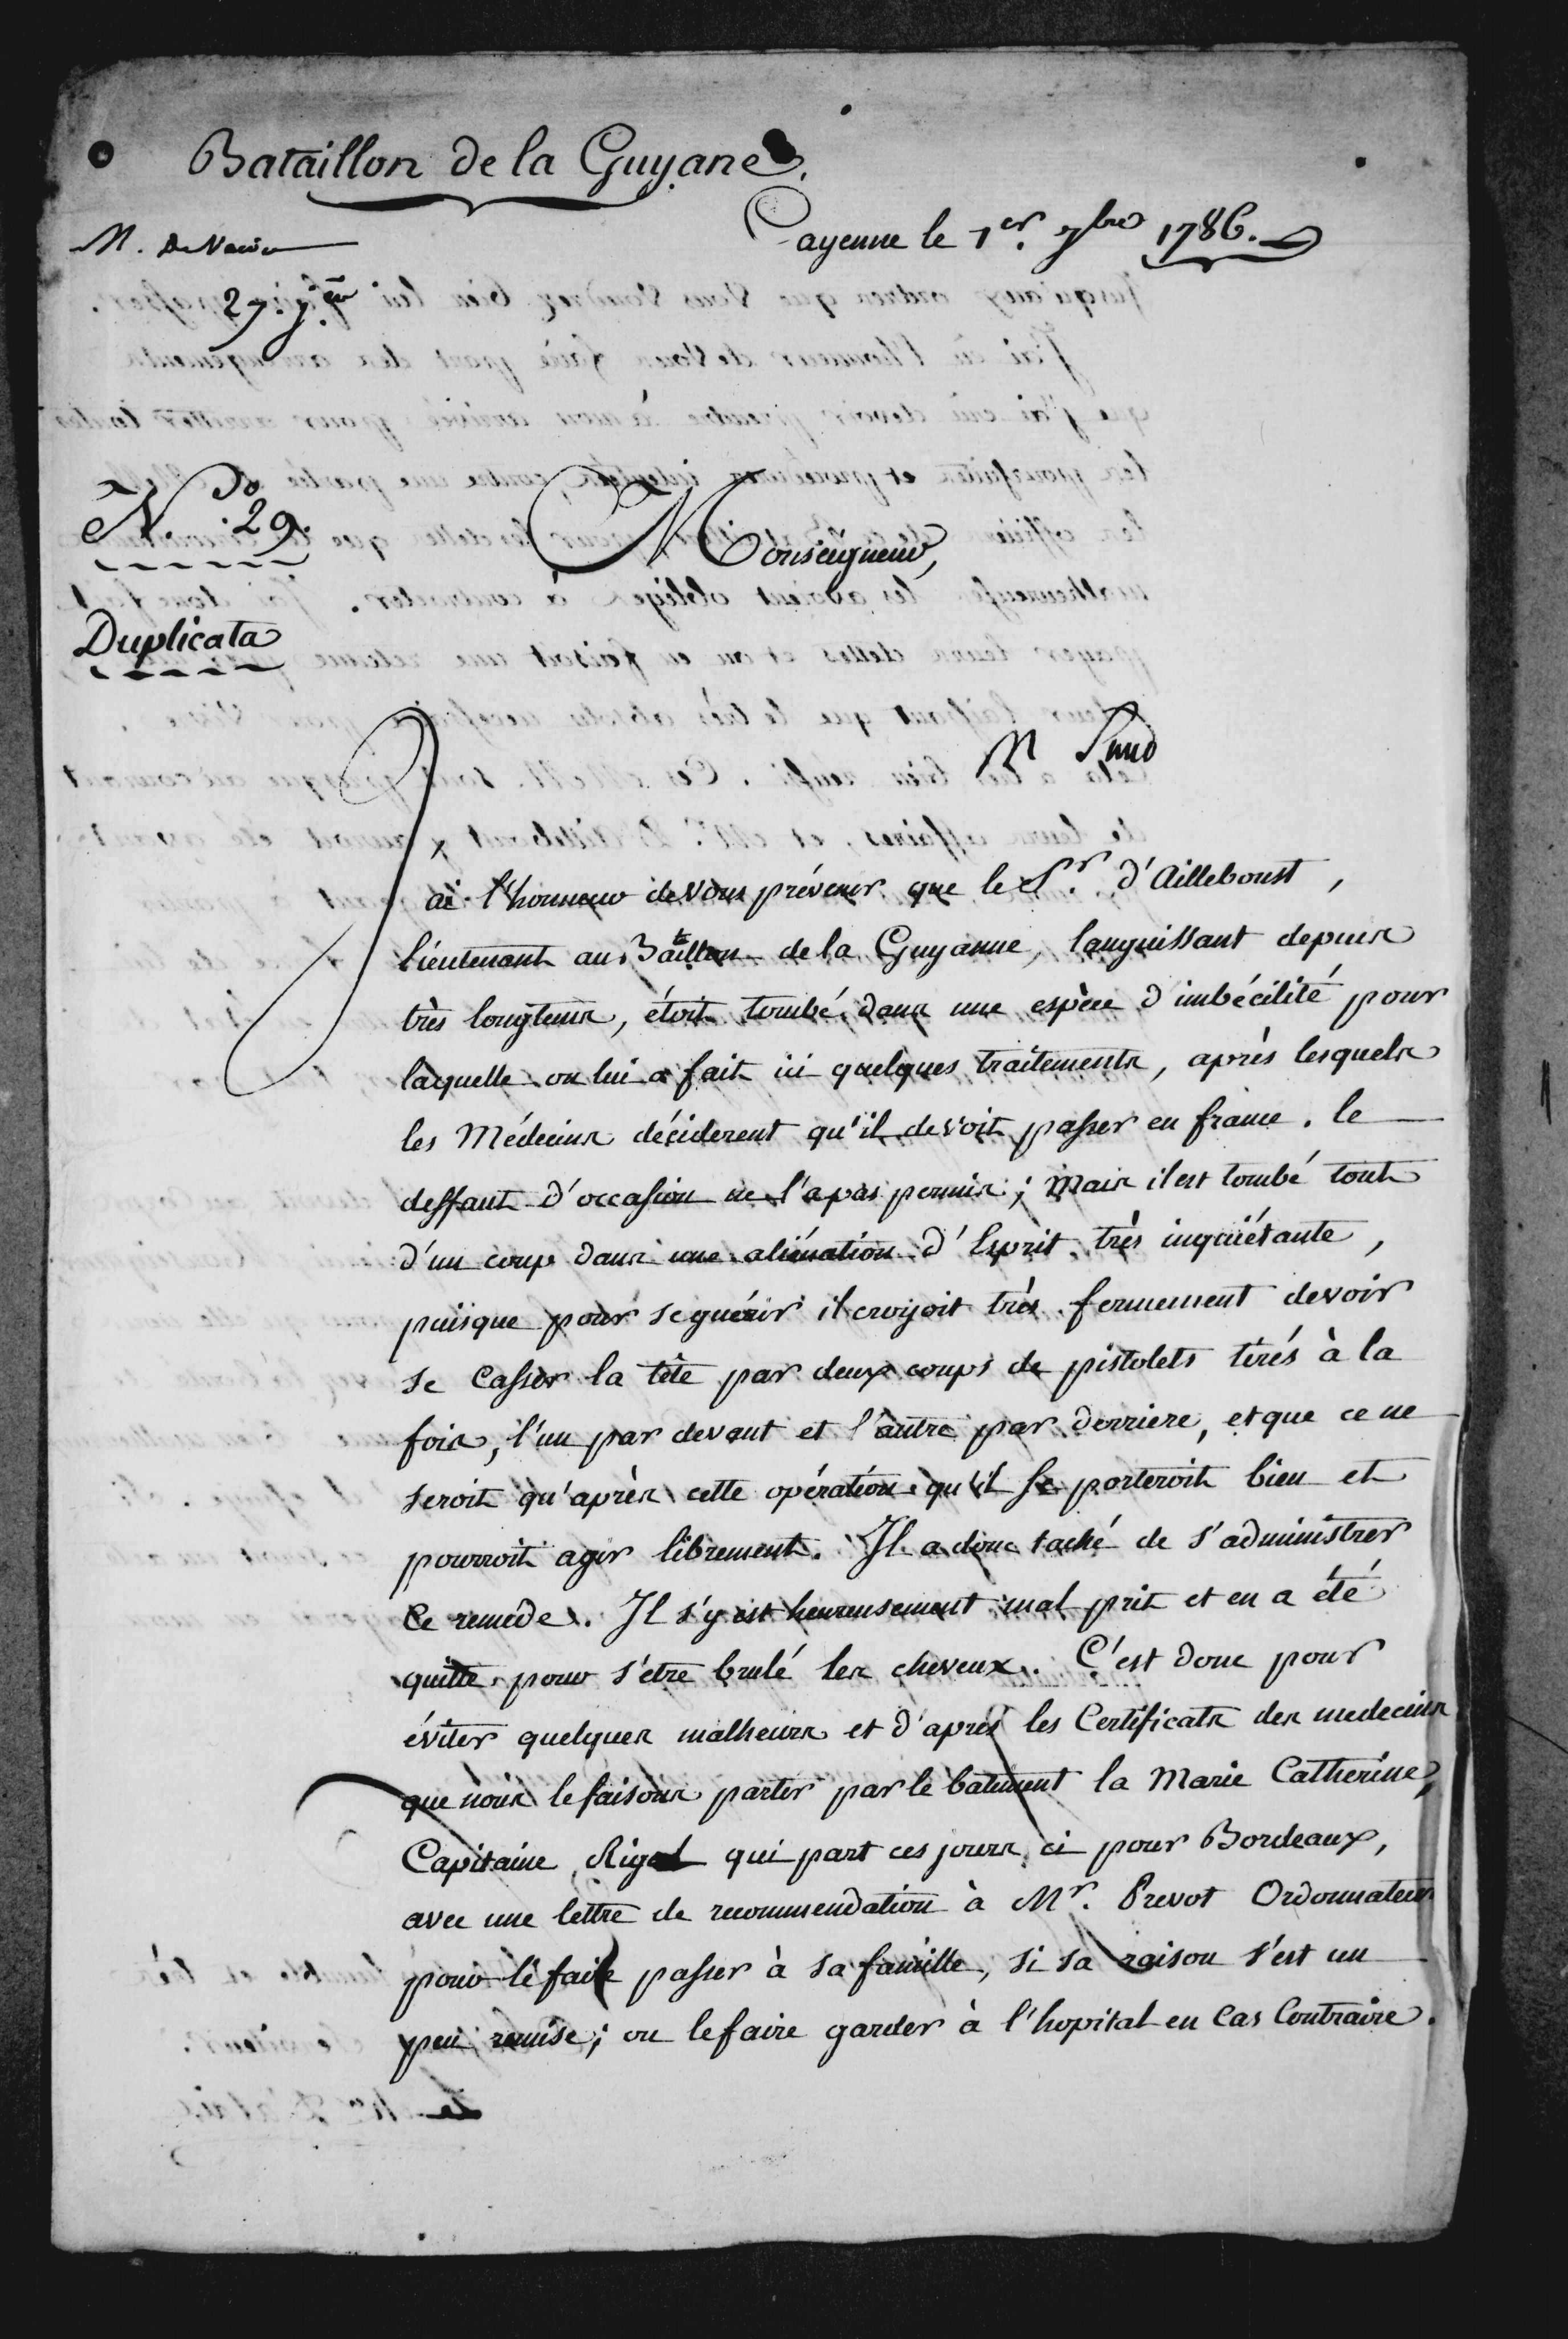 Bataillon de la Guyane.
Cayenne le 1er. 7bre 1786.
N.° 29.
Monseigneur,
Duplicata
J'ai l'honneur de vous prévenir que le Sr. d'Ailleboust,
lieutenant au B.aillon de la Guyanne, languissant depuis
très longtems, étoit tombé dans une espèce d'imbécilité pour
laquelle on lui a fait ici quelques traitements, après lesquels
les Médecins déciderent qu'il devoit passer en france. le
deffaut d'occasion ne l'a pas permis; mais il est tombé tout
d'un coup dans une aliénation d'Esprit très inquiétante,
puisque pour se guérir il croyoit très fermement devoir
se Casser la tête par deux coups de pistolets tirés à la
fois, l'un par devant et l'autre par derriere, et que ce ne
seroit qu'après cette opération qu'il se porteroit bien et
pourroit agir librement. Il a donc taché de s'administrer
ce remède. Il s'y est heureusement mal prit et en a été
quitte pour s'être brulé les cheveux. C'est donc pour
éviter quelques malheurs et d'après les Certificats des medecins
que nous le faisons partir par le batiment la Marie Catherine,
Capitaine Rigal qui part ces jours ci pour Bordeaux,
avec une lettre de recommendation à Mr. Prevot Ordonnateur
pour le faire passer à sa famille, si sa raison s'est un
peu remise; ou le faire garder à l'hopital en Cas Contraire.